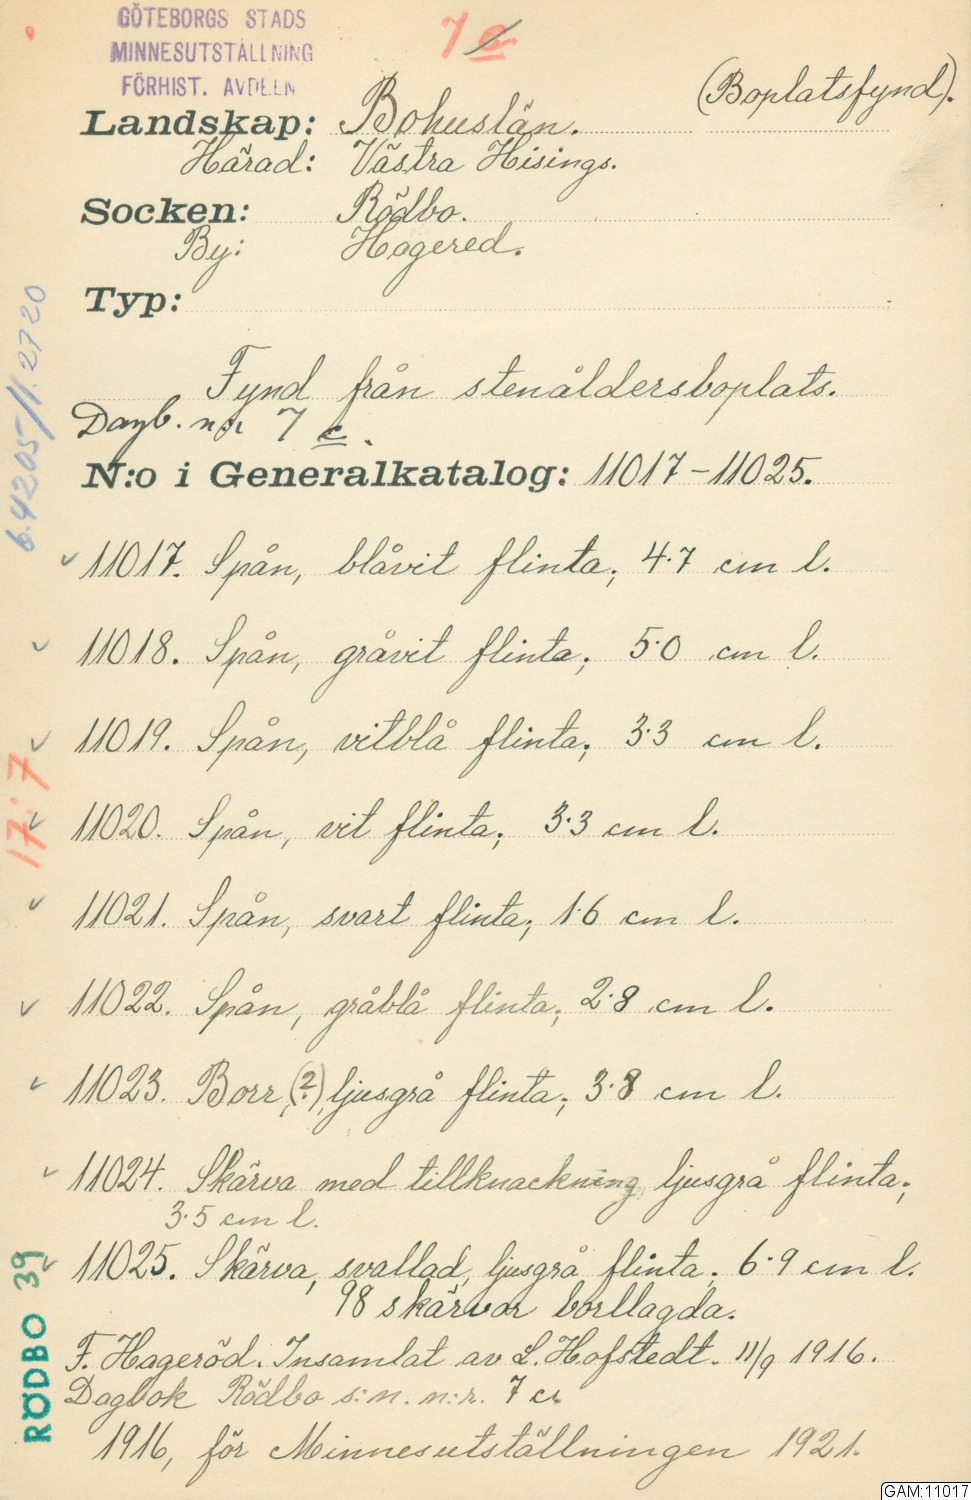 GÖTEBORGS STADS
MINNESUTSTÄLLNING
FÖRHIST. AVDELN
7 a
(Boplatsfynd).
Landskap: Bohuslän.
Härad: Västra Hisings.
Socken: Rödbo.
By: Hagered.
Typ:
Fynd från stenåldersboplats.
Dagb. n:r 7 c.
N:o i Generalkatalog: 11017-11025.
11017. Spån, blåvit flinta; 4.7 cm l.
11018. Spån, gråvit flinta; 5.0 cm l.
11019. Spån, vitblå flinta; 3.3 cm l.
11020. Spån, vit flinta; 3.3 cm l.
11021. Spån, svart flinta; 1.6 cm l.
11022. Spån, gråblå flinta; 2.8 cm l.
11023. Borr, (?), ljusgrå flinta; 3.8 cm l.
11024. Skärva med tillknackning, ljusgrå flinta;
3.5 cm l.
11025. Skärva, svallad, ljusgrå flinta; 6.9 cm l.
98 skärvor borllagda.
F. Hageröd. Insamlat av L. Hofstedt. 11/9 1916.
Dagbok Rödbo s:n. n:r. 7 c.
1916, för Minnesutställningen 1921.
6.4205/11.2720
17:7
RÖDBO 39
GAM:11017